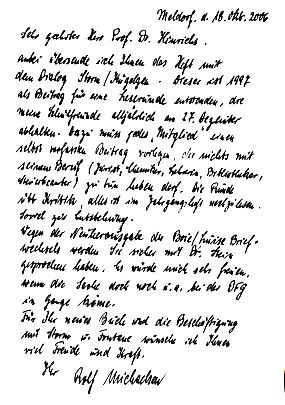 Meldorf, d. 18. Okt. 2006
Sehr geehrter Herr Prof. Dr. Hinrichs.
anbei übersende ich Ihnen das Heft mit
dem Dialog Storm / Kügelgen. Dieser ist 1997
als Beitrag für eine Leserunde entstanden, die
meine Schulfreunde alljährlich am 27. Dezember
abhalten. Dazu muss jedes "Mitglied" einen
selbst verfassten Beitrag vorlegen, der nichts mit
seinem Beruf (Jurist, Chemiker, Lehrerin, Bibliothekar,
Steuerberater) zu tun haben darf. Die Runde
übt Kritik, alles ist im Jahrgangsheft nachzulesen.
Soviel zur Entstehung.
Wegen der Neuherausgabe des Briefwechsels
werden Sie sicher mit Dr.
gesprochen haben. Es würde mich sehr freuen,
wenn die Sache doch noch u. a. bei der
in Gange käme.
Für Ihr neues Buch und die Beschäftigung
mit Storm u. Fontane wünsche ich Ihnen
viel Freude und Kraft.
Ihr
Rolf Michaelsen